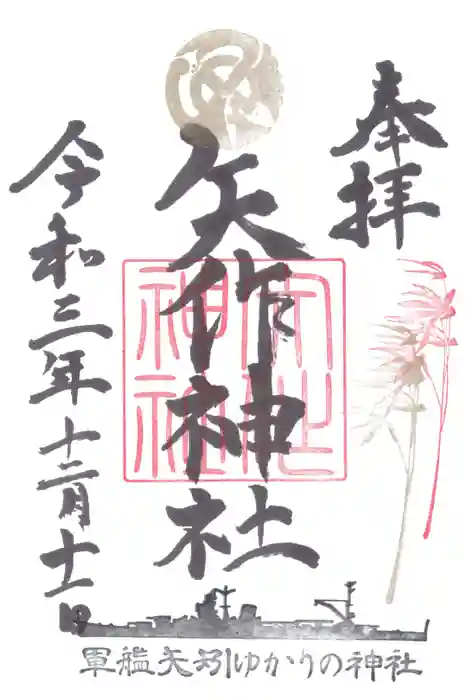 奉拝
矢作神社
令和三年十二月十二日
軍艦矢矧ゆかりの神社